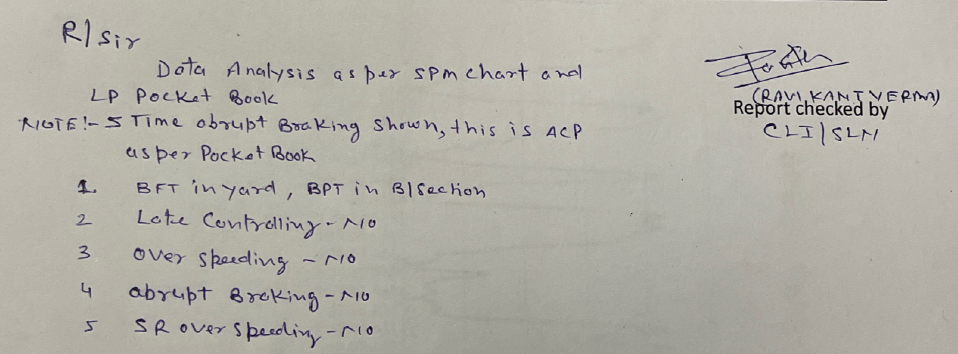 R/Sir
Data Analysis as per SPM chart and
LP Pocket Book
NOTE:- 5 Time abrupt Braking Shown, this is ACP
as per Pocket Book
1. BFT in yard, BPT in B/Section
2 Late Controlling - NO
3 Over speeding - NO
4 abrupt Braking - NO
5 SR over speeding - NO
(RAVI KANT VERMA)
Report checked by
CLI/SLN